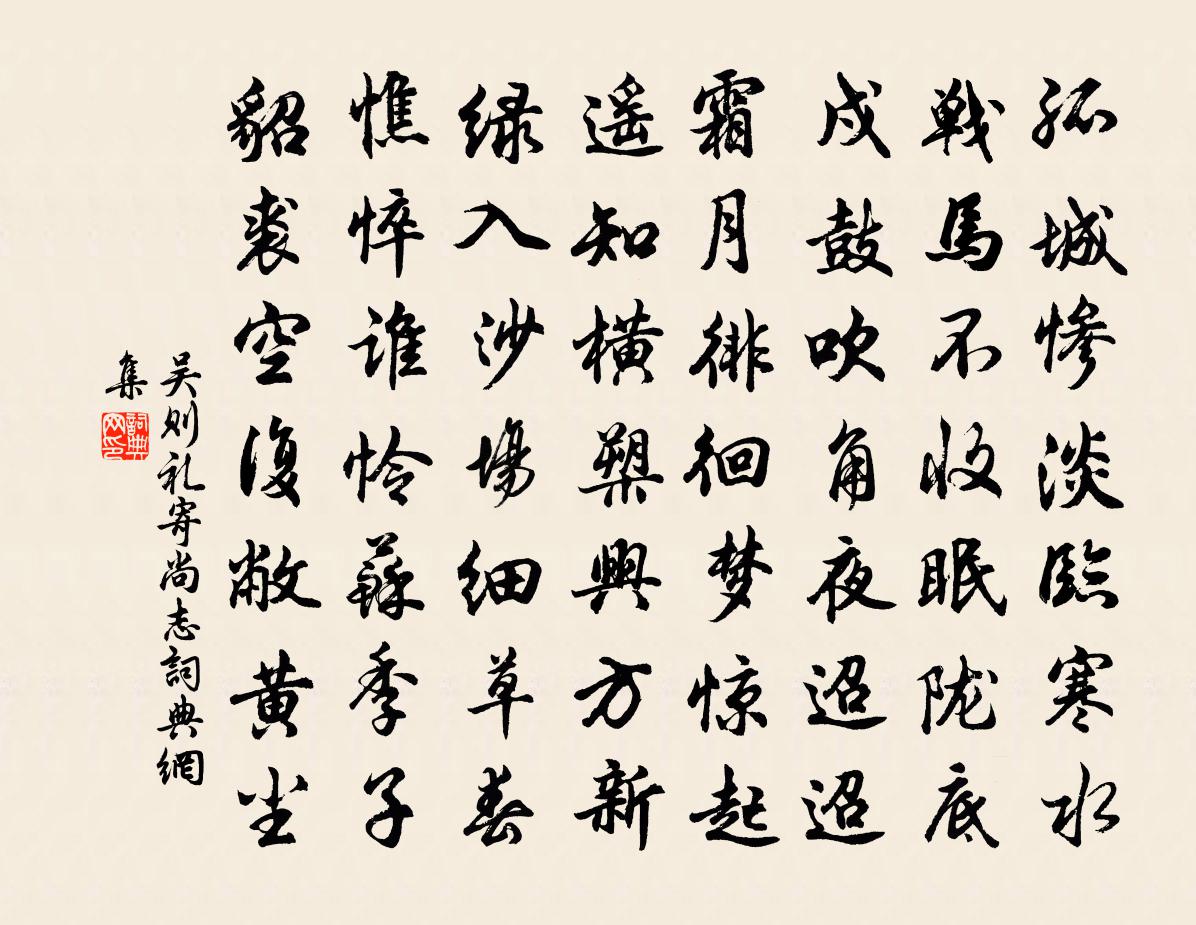 孤城惨淡臨寒水
戦馬不收眠陇底
戍鼓吹角夜迢迢
霜月徘徊梦惊起
遥知橫槊興方新
绿入沙場细草春
憔悴谁怜蘇季子
貂裘空復敝黄尘
吴则礼寄尚志詞典網
集
詞典
网印